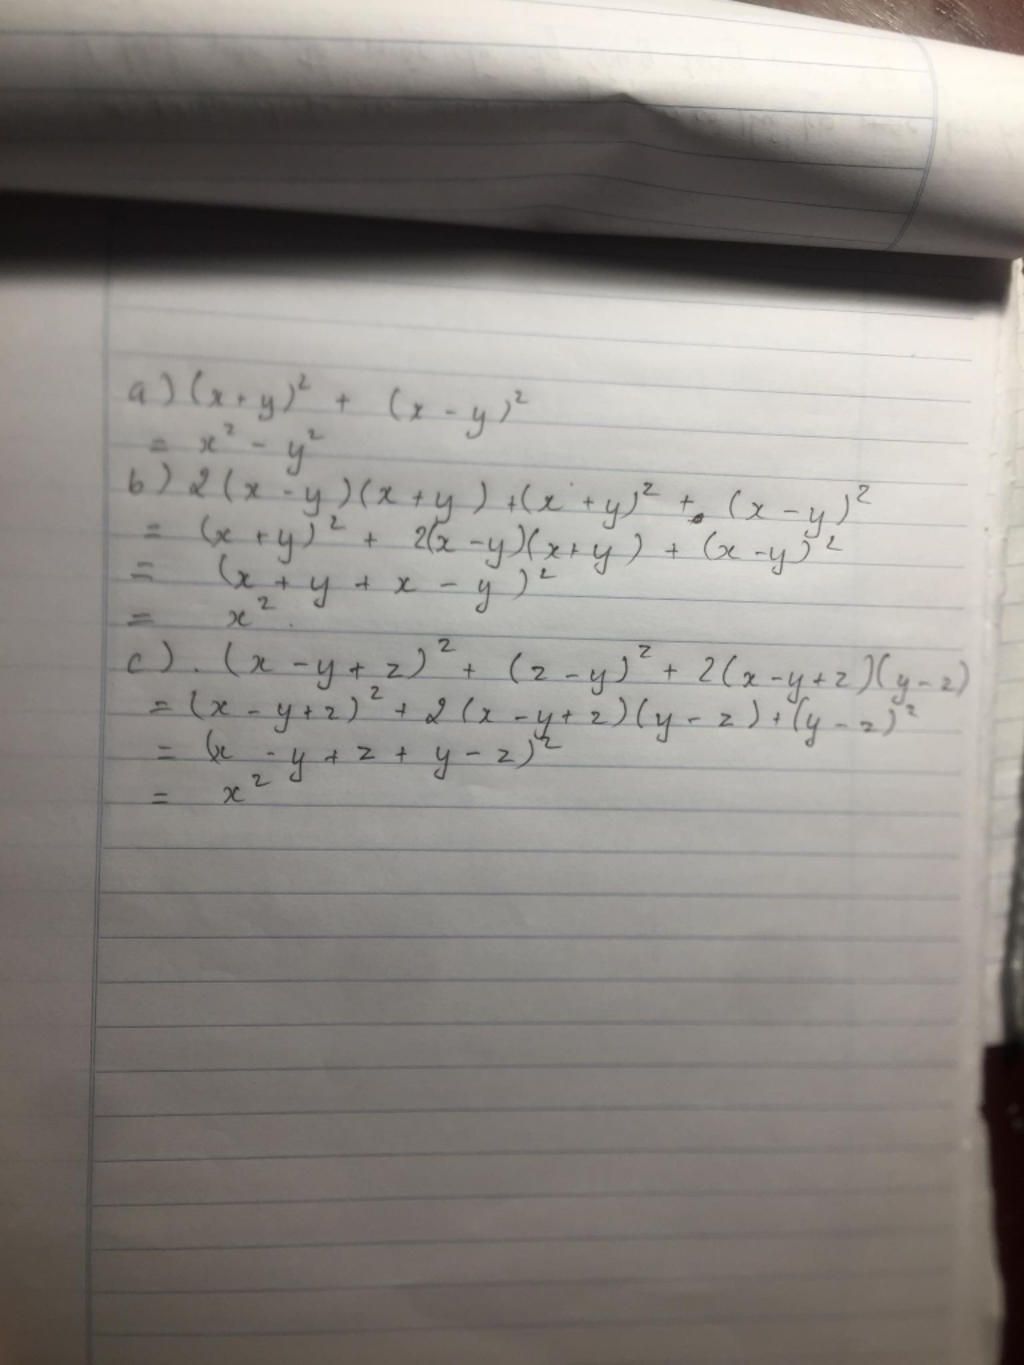 a) (x+y)² + (x-y)²
= x² - y²
b) 2(x-y)(x+y) +(x+y)² + (x-y)²
= (x+y)² + 2(x-y)(x+y) + (x-y)²
= (x+y+x-y)²
= x².
c). (x-y+z)² + (z-y)² + 2(x-y+z)(y-z)
= (x-y+z)² + 2(x-y+z)(y-z)+(y-z)²
= (x-y+z+y-z)²
= x²